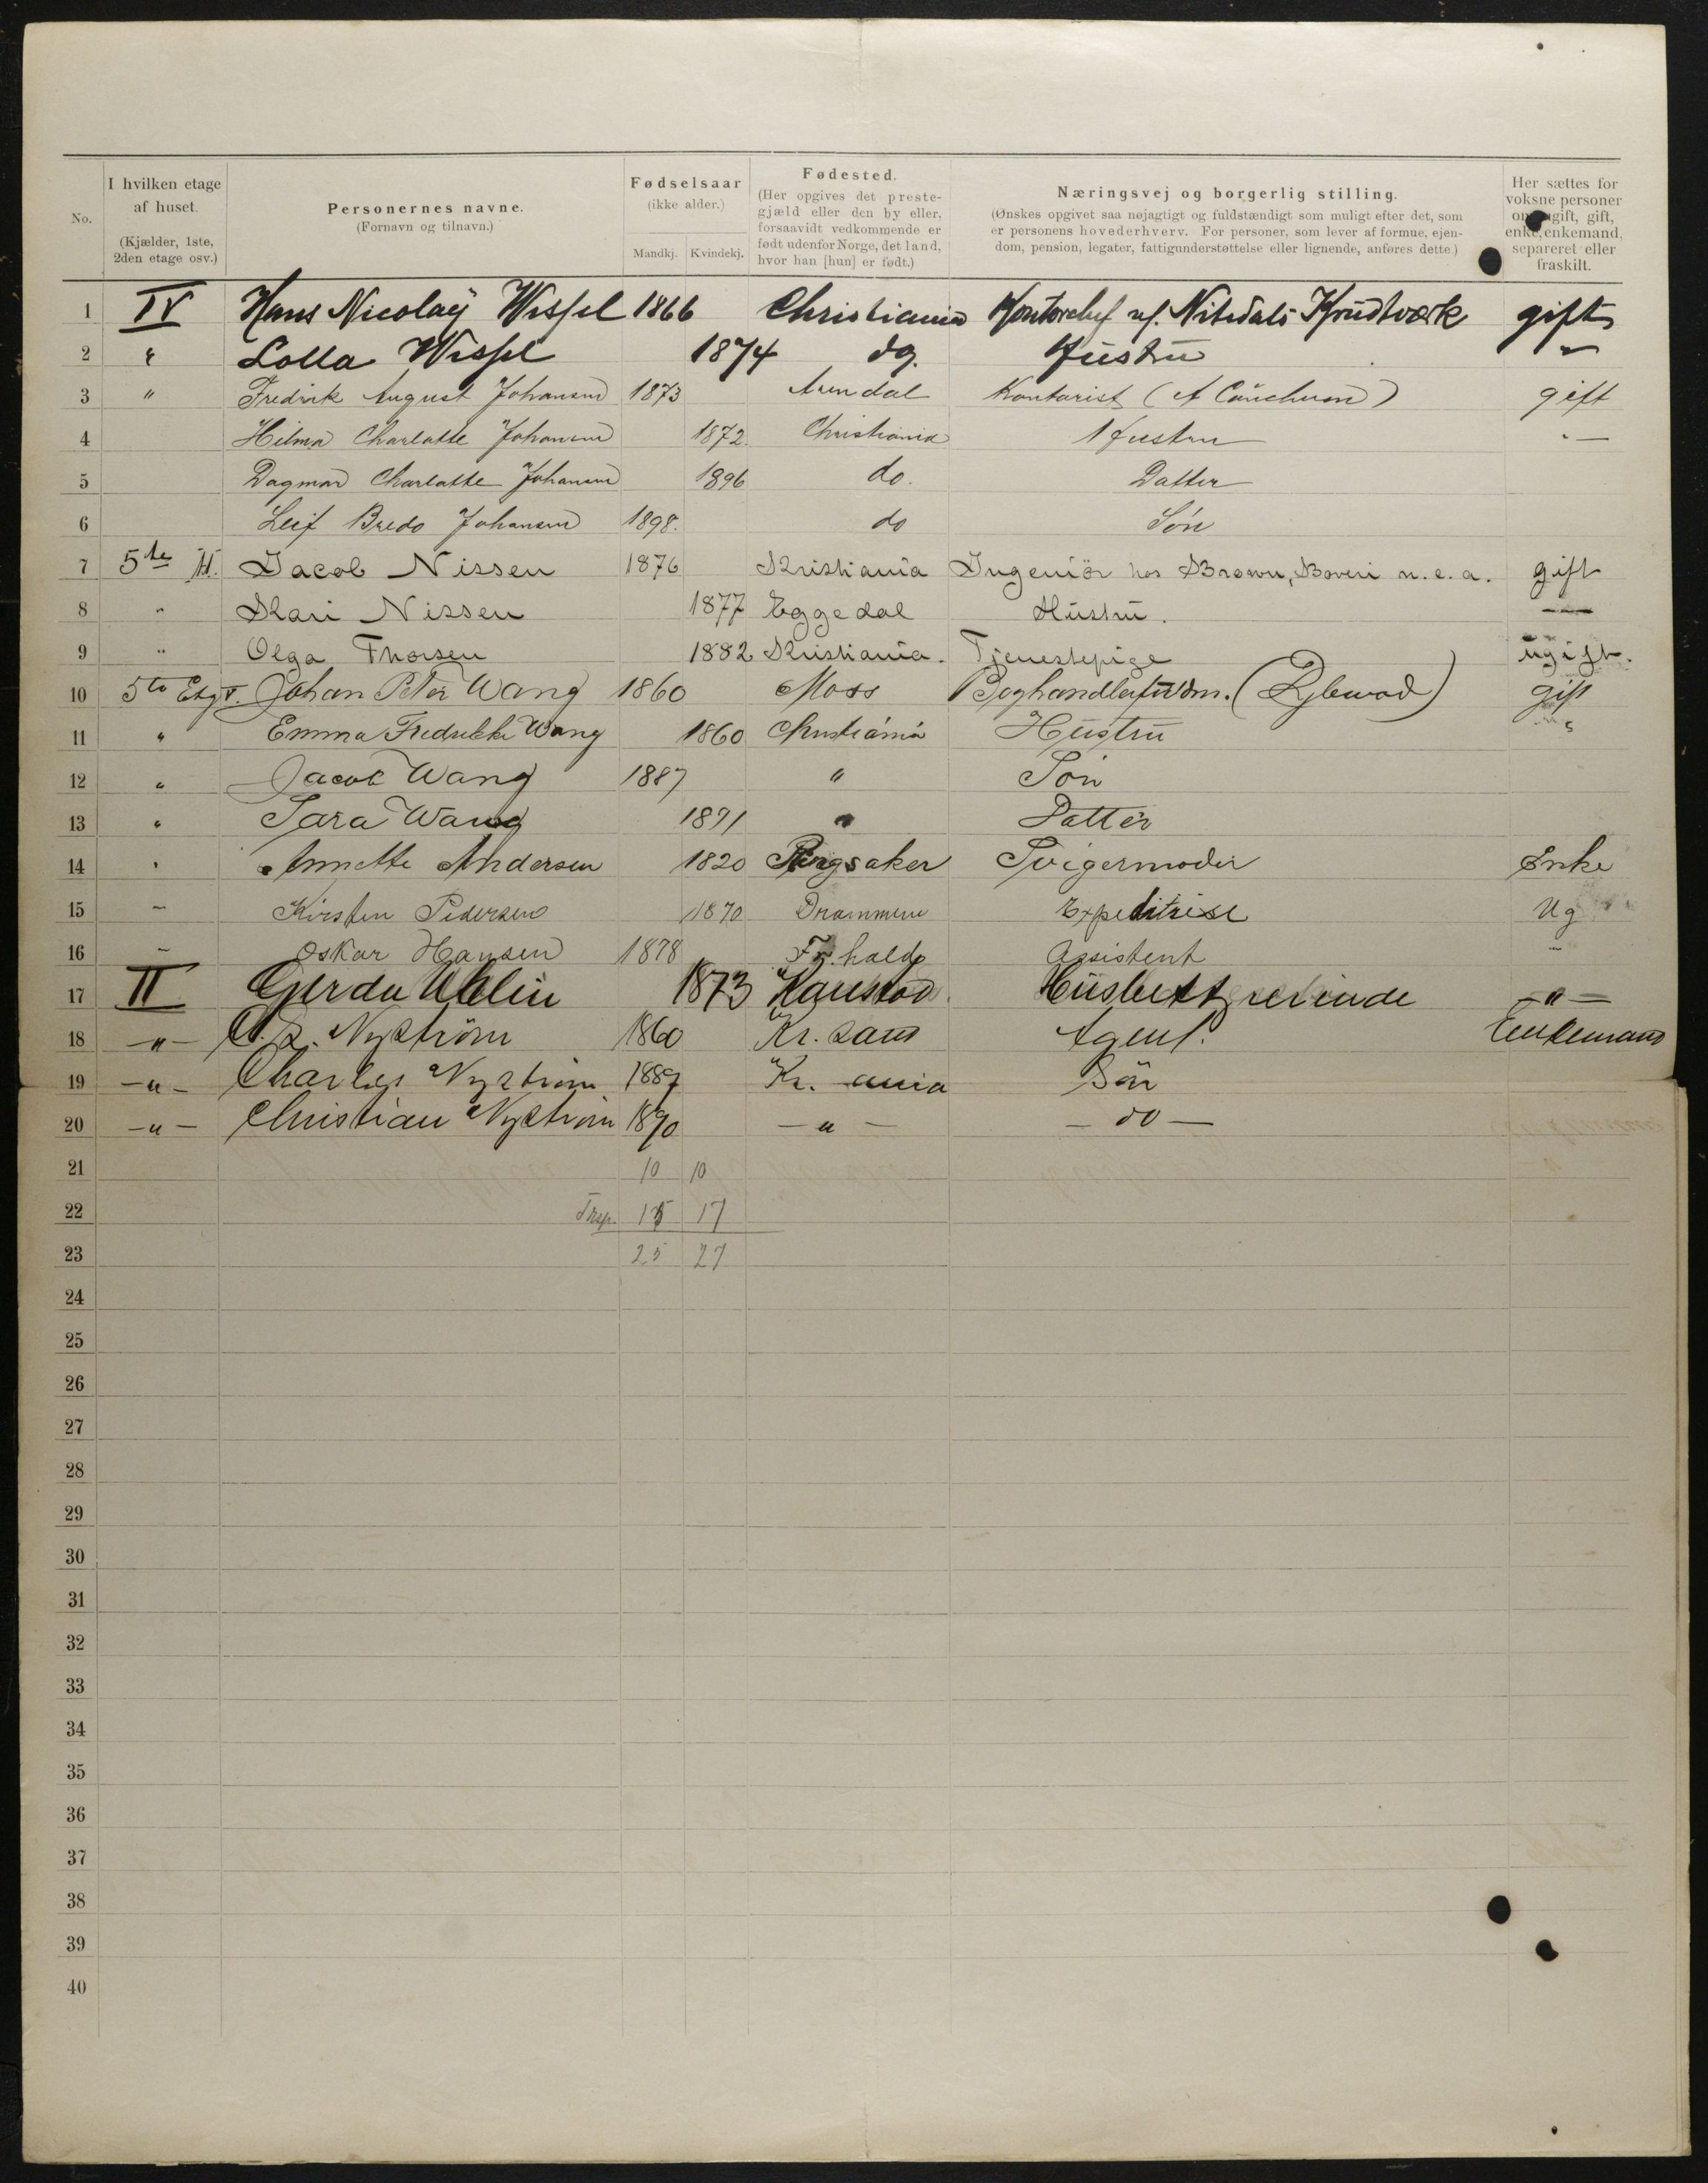 No.
I hvilken etage af huset. (Kjælder, 1ste, 2den etage osv.)
Personernes navne. (Fornavn og tilnavn.)
Fødselsaar (ikke alder.) Mandkj. Kvindekj.
Fødested. (Her opgives det prestegjæld eller den by eller, forsaavidt vedkommende er født udenfor Norge, det land, hvor han [hun] er født.)
Næringsvej og borgerlig stilling. (Ønskes opgivet saa nøjagtigt og fuldstændigt som muligt efter det, som er personens hovederhverv. For personer, som lever af formue, ejendom, pension, legater, fattigunderstøttelse eller lignende, anføres dette.)
Her sættes for voksne personer om ugift, gift, enke, enkemand, separeret eller fraskilt.
1 IV Hans Nicolaÿ Wessel 1866 Christiania Kontorchef v/. Nitedals Krudtværk gift
2 " Lolla Wessel 1874 do. Hustru "
3 " Fredrik August Johansen 1873 Arendal Kontorist gift
4 Hilma Charlotte Johansen 1872 Christiania Hustru "—
5 Dagmar Charlotte Johansen 1896 do. Datter
6 Leif Bredo Johansen 1898. do Søn
7 5te Jacob Nissen 1876 Kristiania Ingeniör hos Brown, Boveri gift
8 " Kari Nissen 1877 Eggedal Hustru. —
9 " Olga Thorsen 1882 Kristiania. Tjenestepige ugift.
10 5te Etg v. Johan Peter Wang 1860 Moss Boghandlerfuldm. gift
11 " Emma Fredrikke Wang 1860 Christiania Hustru "
12 " Jacob Wang 1887 " Søn
13 " Sara Wang 1891 " Datter
14 " Annette Andersen 1820 Ringsaker Svigermoder Enke
15 — Kirsten Pedersen 1870 Drammen Expeditrise Ug
16 — Oskar Hansen 1878 Fr.hald Assistent —
17 II Gerda Uhlin 1873 Karlstad Husbestyrerinde —"—
18 —"— Nyström 1860 Kr. sand Agent. Enkemand
19 —"— Charles Nyström 1889 Kr. ania Sön
20 —"— Christian Nyström 1890 —"— —do—
21 10 10
22 Trsp. 15 17
23 25 27
24
25
26
27
28
29
30
31
32
33
34
35
36
37
38
39
40